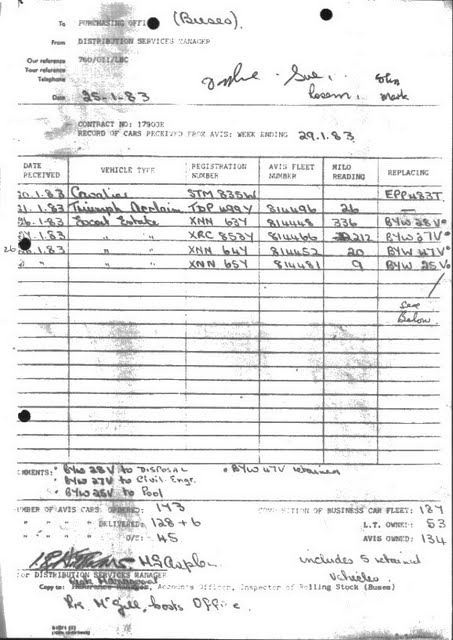 To PURCHASING OFFICER (Buses).
From DISTRIBUTION SERVICES MANAGER
Our reference 760/G11/LEC
Your reference
Telephone
Sue.
John
Mark
Date 25-1-83
CONTRACT NO: 17903E
RECORD OF CARS RECEIVED FROM AVIS: WEEK ENDING 29.1.83
DATE RECEIVED VEHICLE TYPE REGISTRATION NUMBER AVIS FLEET NUMBER MILO READING REPLACING
20.1.83 Cavalier STM 835W EPP483T
21.1.83 Triumph Acclaim TDP 499Y 814496 26 —
26.1.83 Escort Estate XNN 63Y 814448 336 BYW 28V
.1.83 " " XRC 853Y 814466 212 BYW 27V
26 .1.83 " " XNN 64Y 814452 20 BYW 47V
" " " XNN 65Y 814481 9 BYW 25V
see
Below
COMMENTS: • BYW 28V to DISPOSAL • BYW 47V retained
• BYW 27V to Civil. Engr.
• BYW 25V to Pool
NUMBER OF AVIS CARS ORDERED: 173 COMPOSITION OF BUSINESS CAR FLEET: 187
" " " " DELIVERED: 128 + 6 L.T. OWNED: 53
" " " " O/S: 45 AVIS OWNED: 134
includes 5 retained
vehicles
for DISTRIBUTION SERVICES MANAGER
Copy to: Insurance Manager, Accounts Officer, Inspector of Rolling Stock (Buses)
McGill, Costs Office